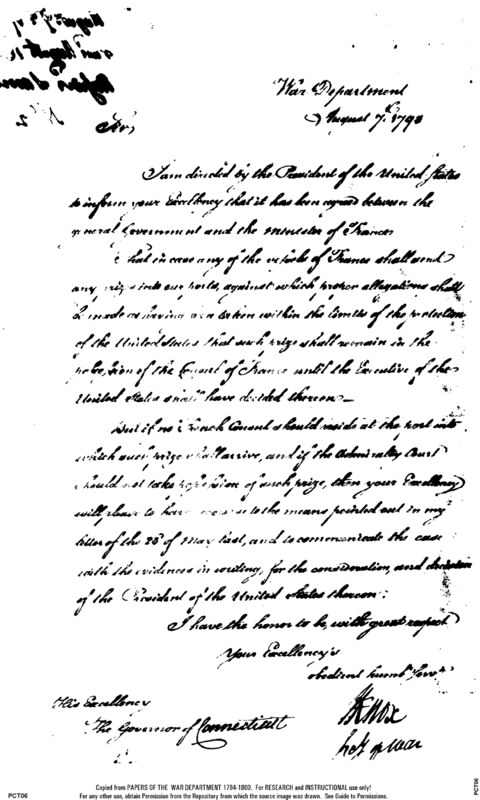 War Department
August 7th 1793
Sir,
I am directed by the President of the United States
to inform your Excellency that it has been agreed between the
general Government and the minister of France
That in case any of the vessels of France shall send
any prize into our ports, against which proper allegations shall
be made as having been taken within the limits of the protection
of the United States that such prize shall remain in the
possession of the Consul of France until the Executive of the
United States shall have decided thereon—
But if no French Consul should reside at the port into
which such prize shall arrive, and if the Admiralty Court
should not take possession of such prize, then your Excellency
will please to have recourse to the means pointed out in my
letter of the 23d of May last, and to communicate the case
with the evidences in writing, for the consideration, and decision
of the President of the United States thereon:
I have the honor to be, with great respect
Your Excellency's
obedient humb Servt
HKnox
Secy of War
His Excellency
The Governor of Connecticut
Copied from PAPERS OF THE WAR DEPARTMENT 1784-1800. For RESEARCH and INSTRUCTIONAL use only!
PCT06
For any other use, obtain Permission from the Repository from which the source image was drawn. See Guide to Permissions.
PCT06